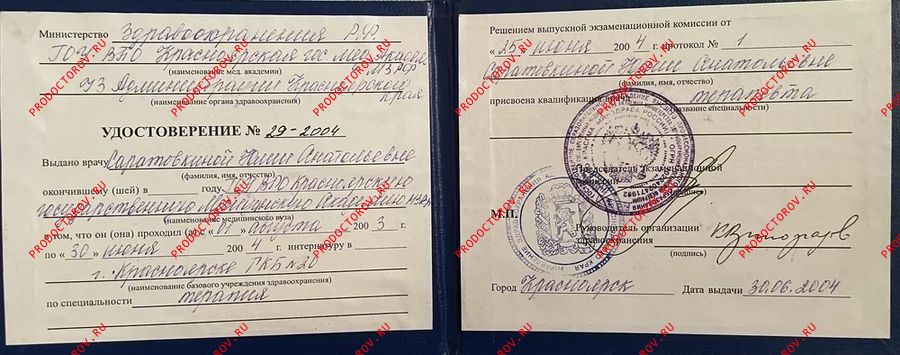 Министерство Здравоохранения РФ
ГОУ ВПО Красноярская гос мед академ
МЗ РФ
(наименование мед. академии)
УЗ Администрации Красноярского
края
(наименование органа здравоохранения)
УДОСТОВЕРЕНИЕ № 29-2004
Выдано врачу Саратовкиной Юлии Анатольевне
(фамилия, имя, отчество)
окончившему (шей) в году ГОУ ВПО Красноярскую
государственную Медицинскую Академию
(наименование медицинского вуза)
в том, что он (она) проходил (а) с « 01 » августа 200 3 г.
по « 30 » июня 200 4 г. интернатуру в
г. Красноярске ГКБ №20
(наименование базового учреждения здравоохранения)
по специальности терапия
Решением выпускной экзаменационной комиссии от
« 25 » июня 200 4 г. протокол № 1
Саратовкиной Юлии Анатольевне
(фамилия, имя, отчество)
присвоена квалификация врача терапевта
(название специальности)
Председатель экзаменационной
комиссии
М.П.
Руководитель организации
здравоохранения
(подпись)
Город Красноярск Дата выдачи 30.06.2004
PRODOCTOROV.RU